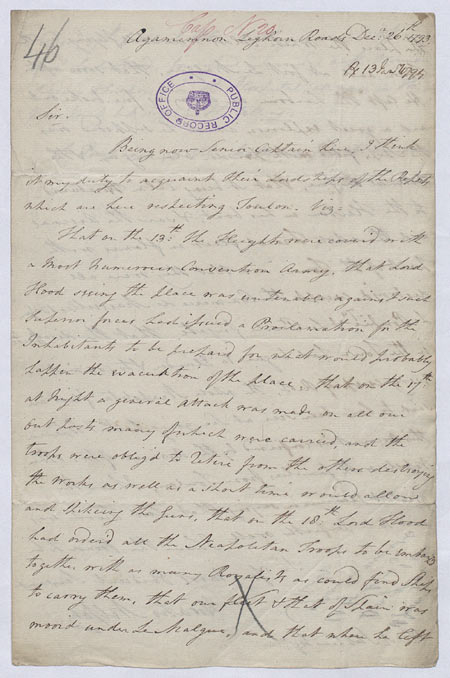 46
Cap N 90
Agamemnon Leghorn Roads Decr: 26th 1793
Rx 13 Jany 1794
PUBLIC RECORD OFFICE
Sir.
Being now Senior Captain here, I think
it my duty to acquaint their Lordships of the Reports
which are here respecting Toulon. Viz:
That on the 13th: the Heights were cover'd with
a Most Numerous Convention Army, that Lord
Hood seeing the place was untenable against such
Superior forces had issued a Proclamation for the
Inhabitants to be prepared for what would probably
happen the evacuation of the place that on the 17th
at Night a general attack was made on all our
out posts many of which were carried, and the
troops were obliged to retire from the others destroying
the Works as well as a short time would allow
and spiking the Guns, that on the 18th. Lord Hood
had order'd all the Neapolitan Troops to be embark'd
together with as many Royalists as could find Ships
to carry them, that our fleet & that of Spain was
moor'd under La Malgue, and that when he left